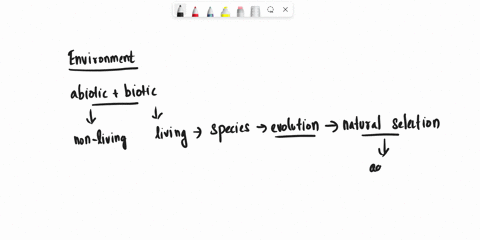 Environment
abiotic + biotic
non-living living → species → evolution → natural selection